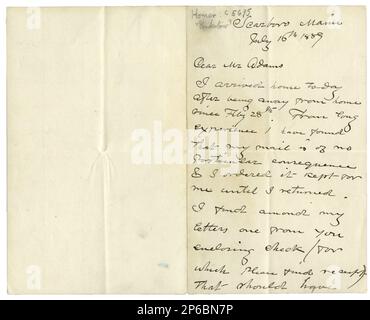 Homer
Scarboro Maine
July 16th 1889
Dear Mr Adams
I arrived home to day
after being away from home
since Feby 28th. From long
experience I have found
that my mail is of no
particular consequence
& I ordered it kept for
me until I returned.
I find among my
letters one from you
enclosing check, for
which please find receipt
that should have
alamy
Image ID: 2P6BN7P
www.alamy.com